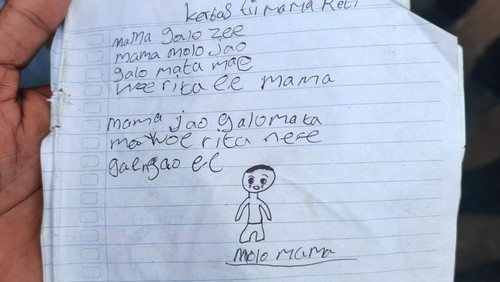 kertas tii mama Reti
mama galo zee
mama molo jao
galo mata mae
woe rita ee mama
mama jao galo mata
woe rita nese
gaengao ee
molo mama